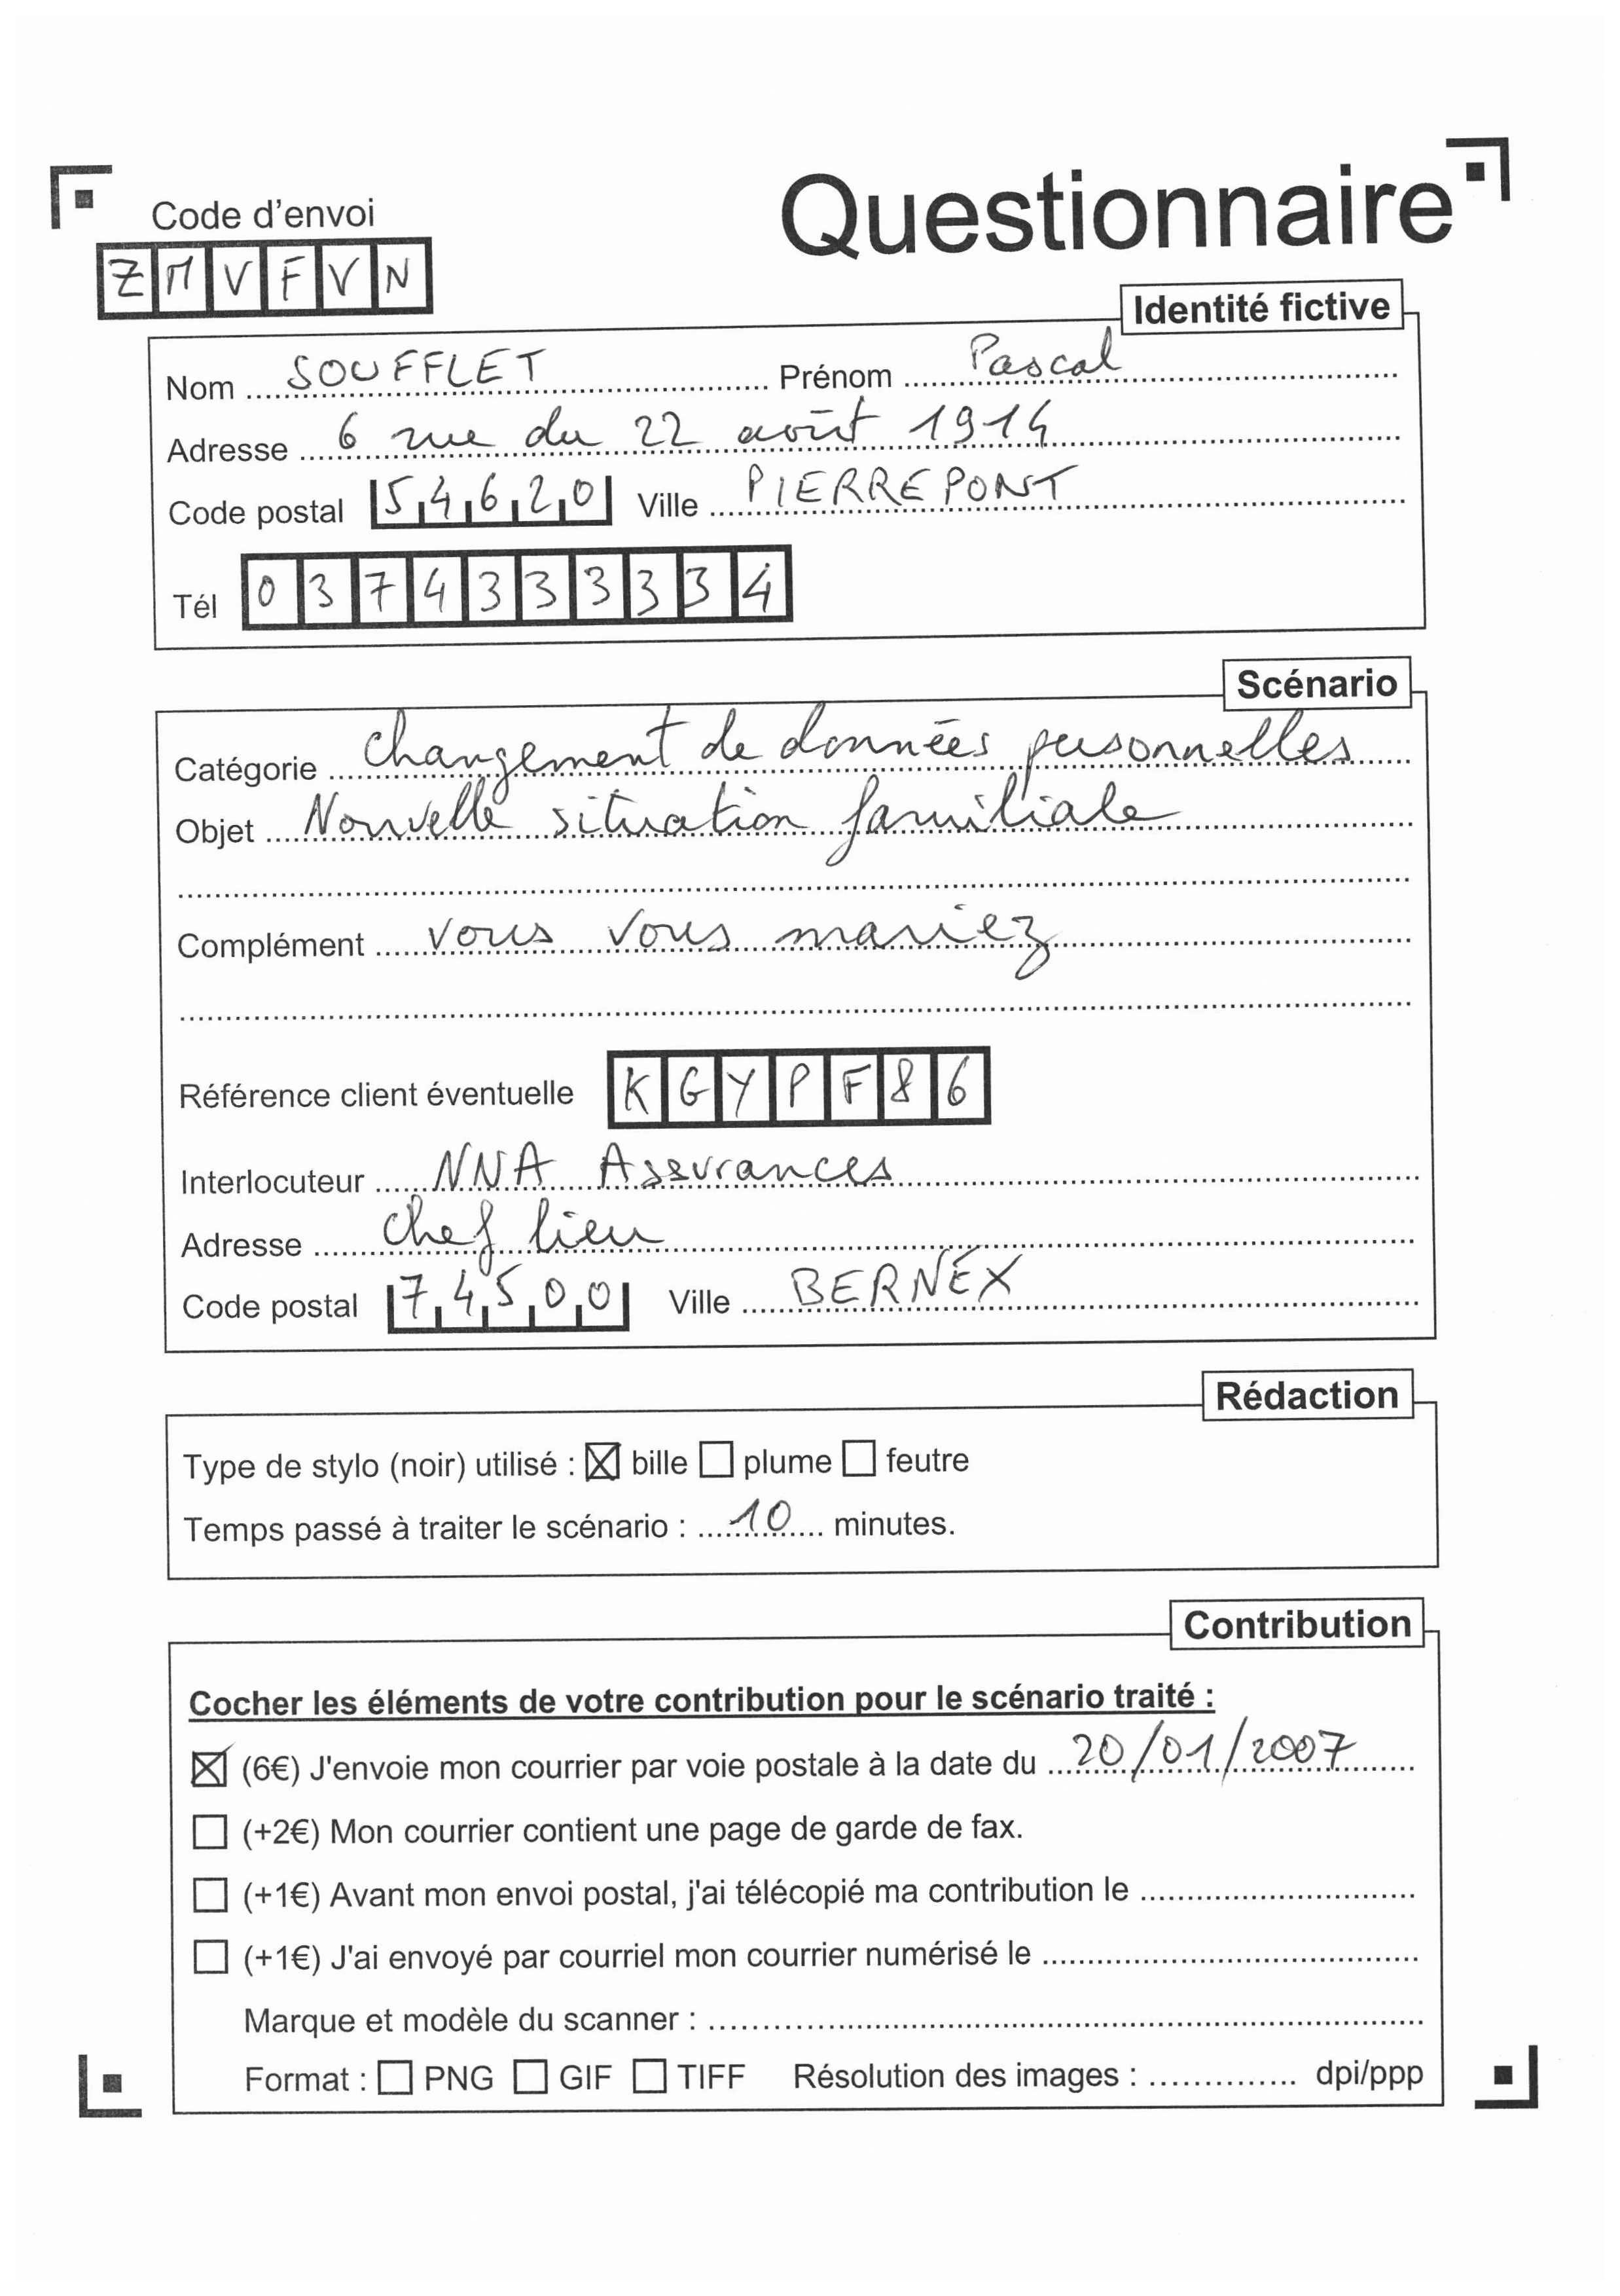 Questionnaire
Code d'envoi
ZMVFVN
Identité fictive
Nom SOUFFLET Prénom Pascal
Adresse 6 rue du 22 août 1914
Code postal 54620 Ville PIERREPONT
Tél 0374333334
Scénario
Catégorie changement de données personnelles
Objet Nouvelle situation familiale
Complément vous vous mariez
Référence client éventuelle KGYPF86
Interlocuteur NNA Assurances
Adresse chef lieu
Code postal 74500 Ville BERNEX
Rédaction
Type de stylo (noir) utilisé : ☒ bille ☐ plume ☐ feutre
Temps passé à traiter le scénario : 10 minutes.
Contribution
Cocher les éléments de votre contribution pour le scénario traité :
☒ (6€) J'envoie mon courrier par voie postale à la date du 20/01/2007
☐ (+2€) Mon courrier contient une page de garde de fax.
☐ (+1€) Avant mon envoi postal, j'ai télécopié ma contribution le
☐ (+1€) J'ai envoyé par courriel mon courrier numérisé le
Marque et modèle du scanner :
Format : ☐ PNG ☐ GIF ☐ TIFF Résolution des images : dpi/ppp